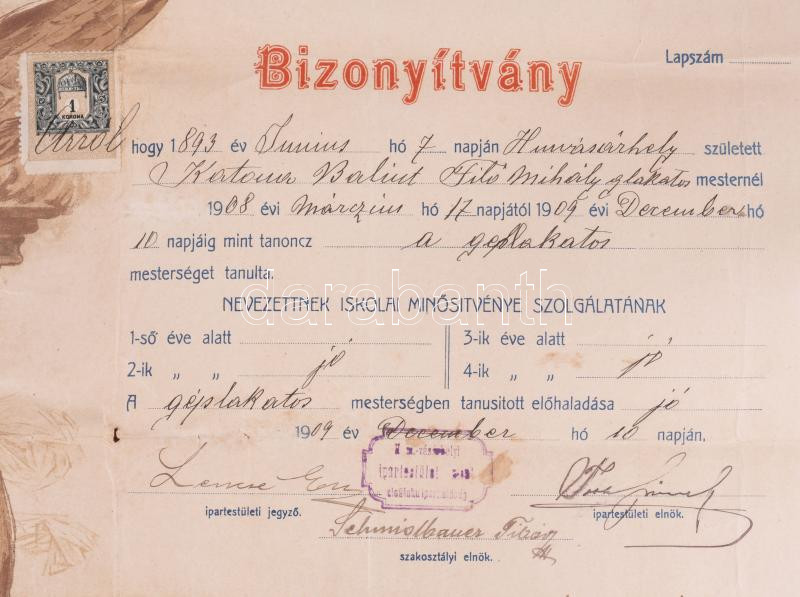 Bizonyítvány
Lapszám
1
KORONA
Arról hogy 1893 év Junius hó 7 napján Hmvásárhely született
Katona Balint Filó Mihály glakatos mesternél
1908 évi Márczius hó 17 napjától 1909 évi December hó
10 napjáig mint tanoncz a géplakatos
mesterséget tanulta.
NEVEZETTNEK ISKOLAI MINŐSITVÉNYE SZOLGÁLATÁNAK
darabanth
1-ső éve alatt
3-ik éve alatt jó
2-ik „ „ jó
4-ik „ „ jó
A géplakatos mesterségben tanusitott előhaladása jó
1909 év December hó 10 napján.
ipartestület
Lencse
ipartestületi jegyző.
ipartestületi elnök.
Schmidbauer
szakosztályi elnök.